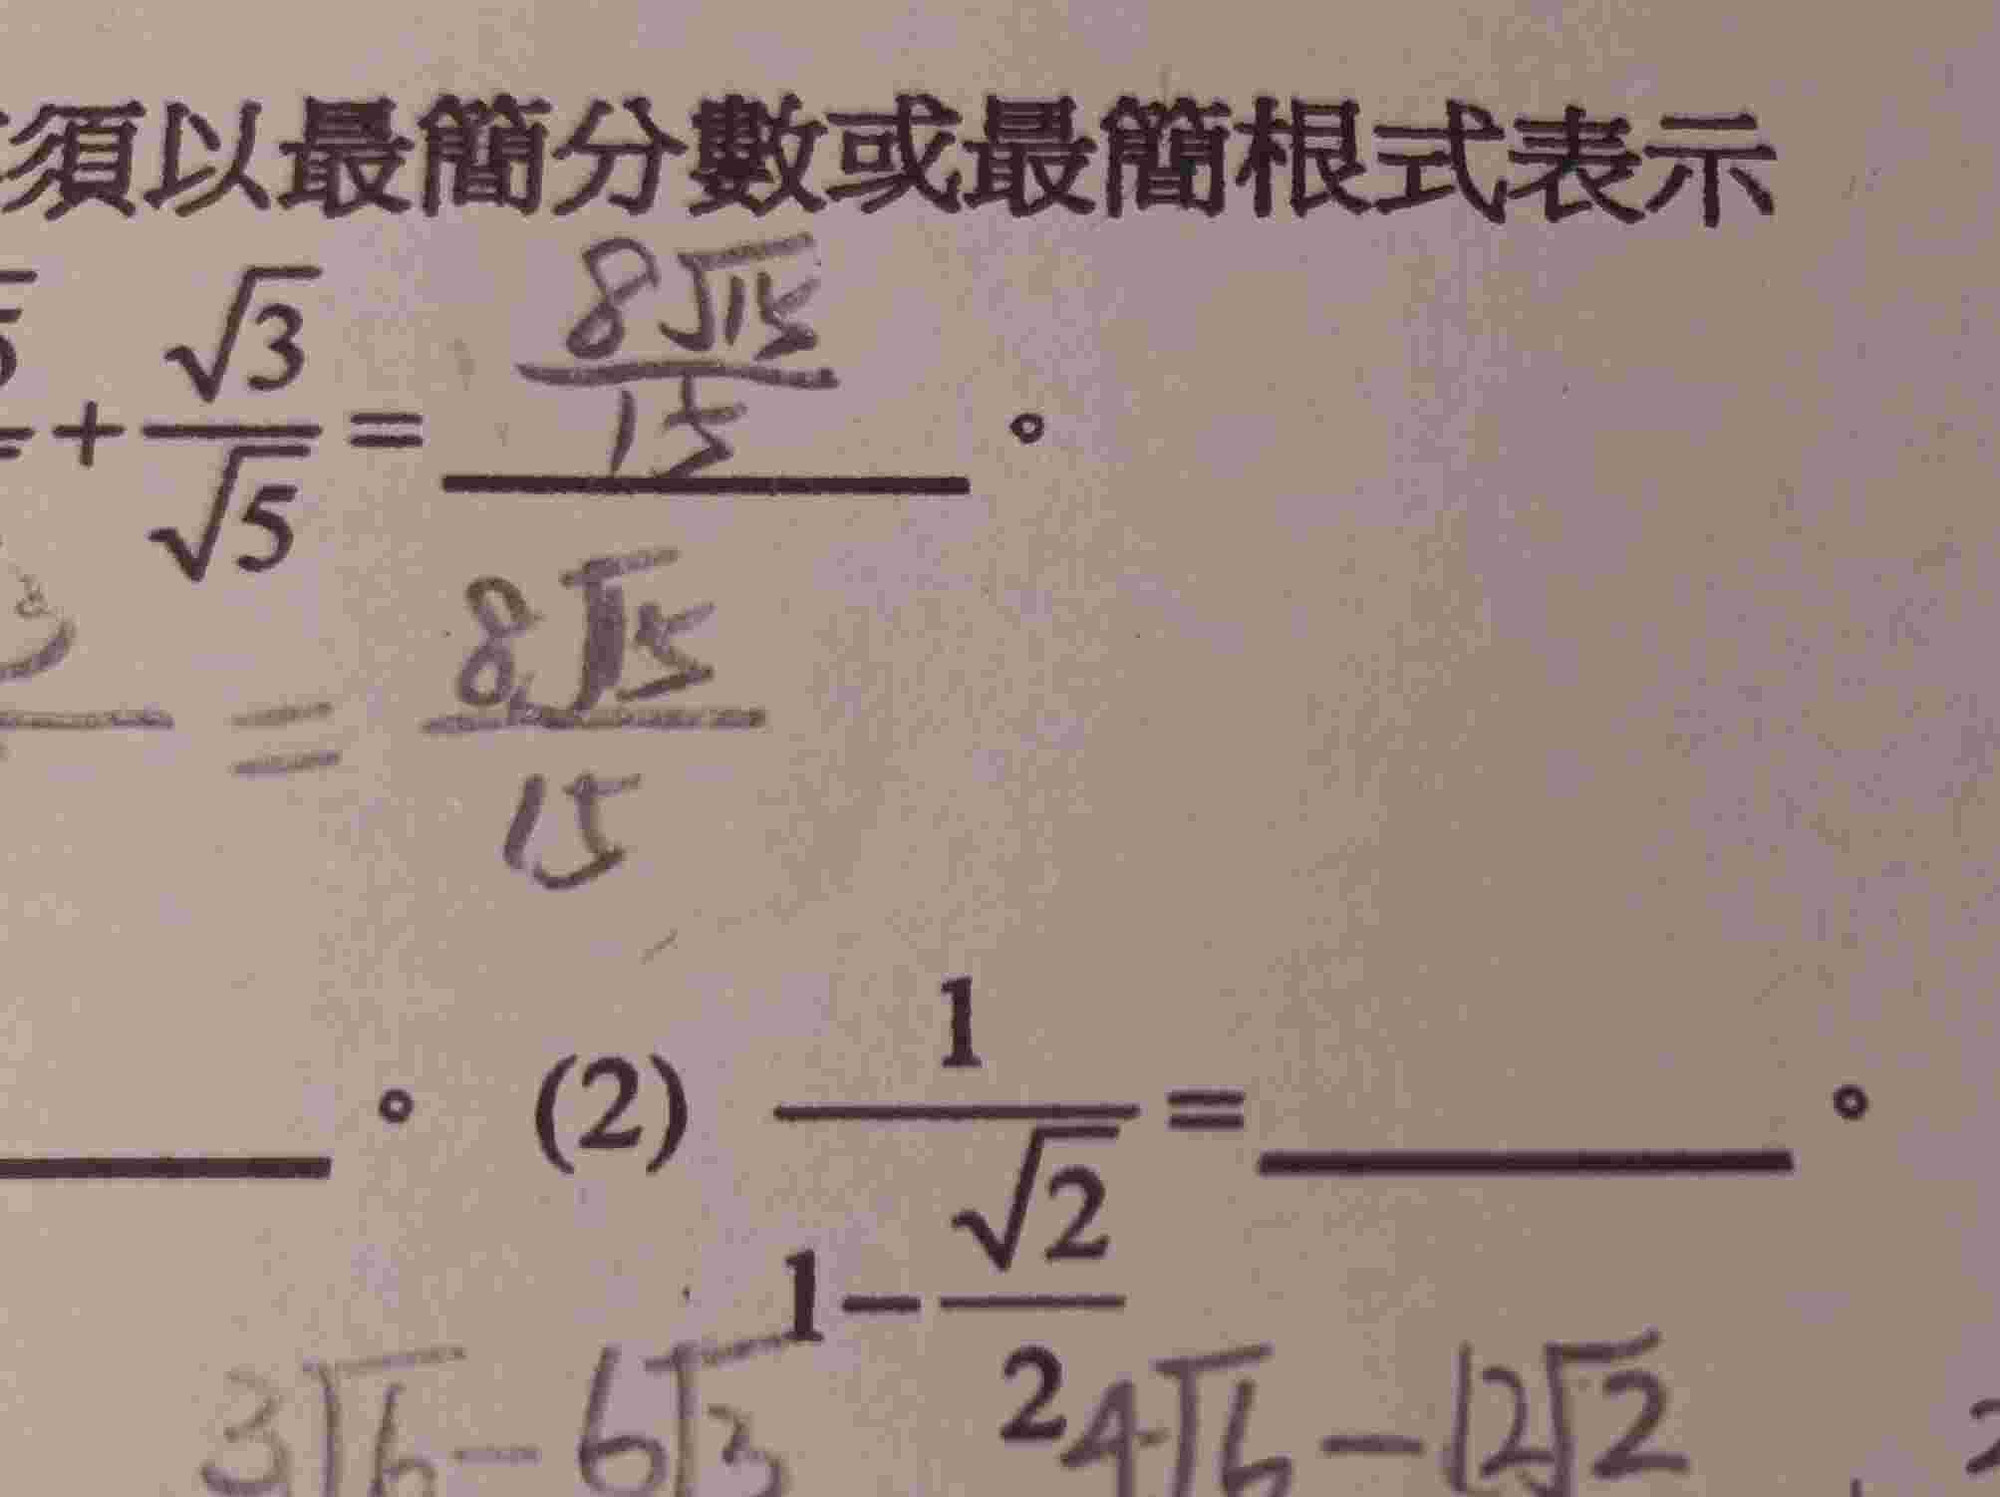 須以最簡分數或最簡根式表示
+ √3/√5 = 8√15/15 。
= 8√15/15
。 (2) 1/(1−√2/2) = 。
3√6 − 6√3 4√6 − 12√2